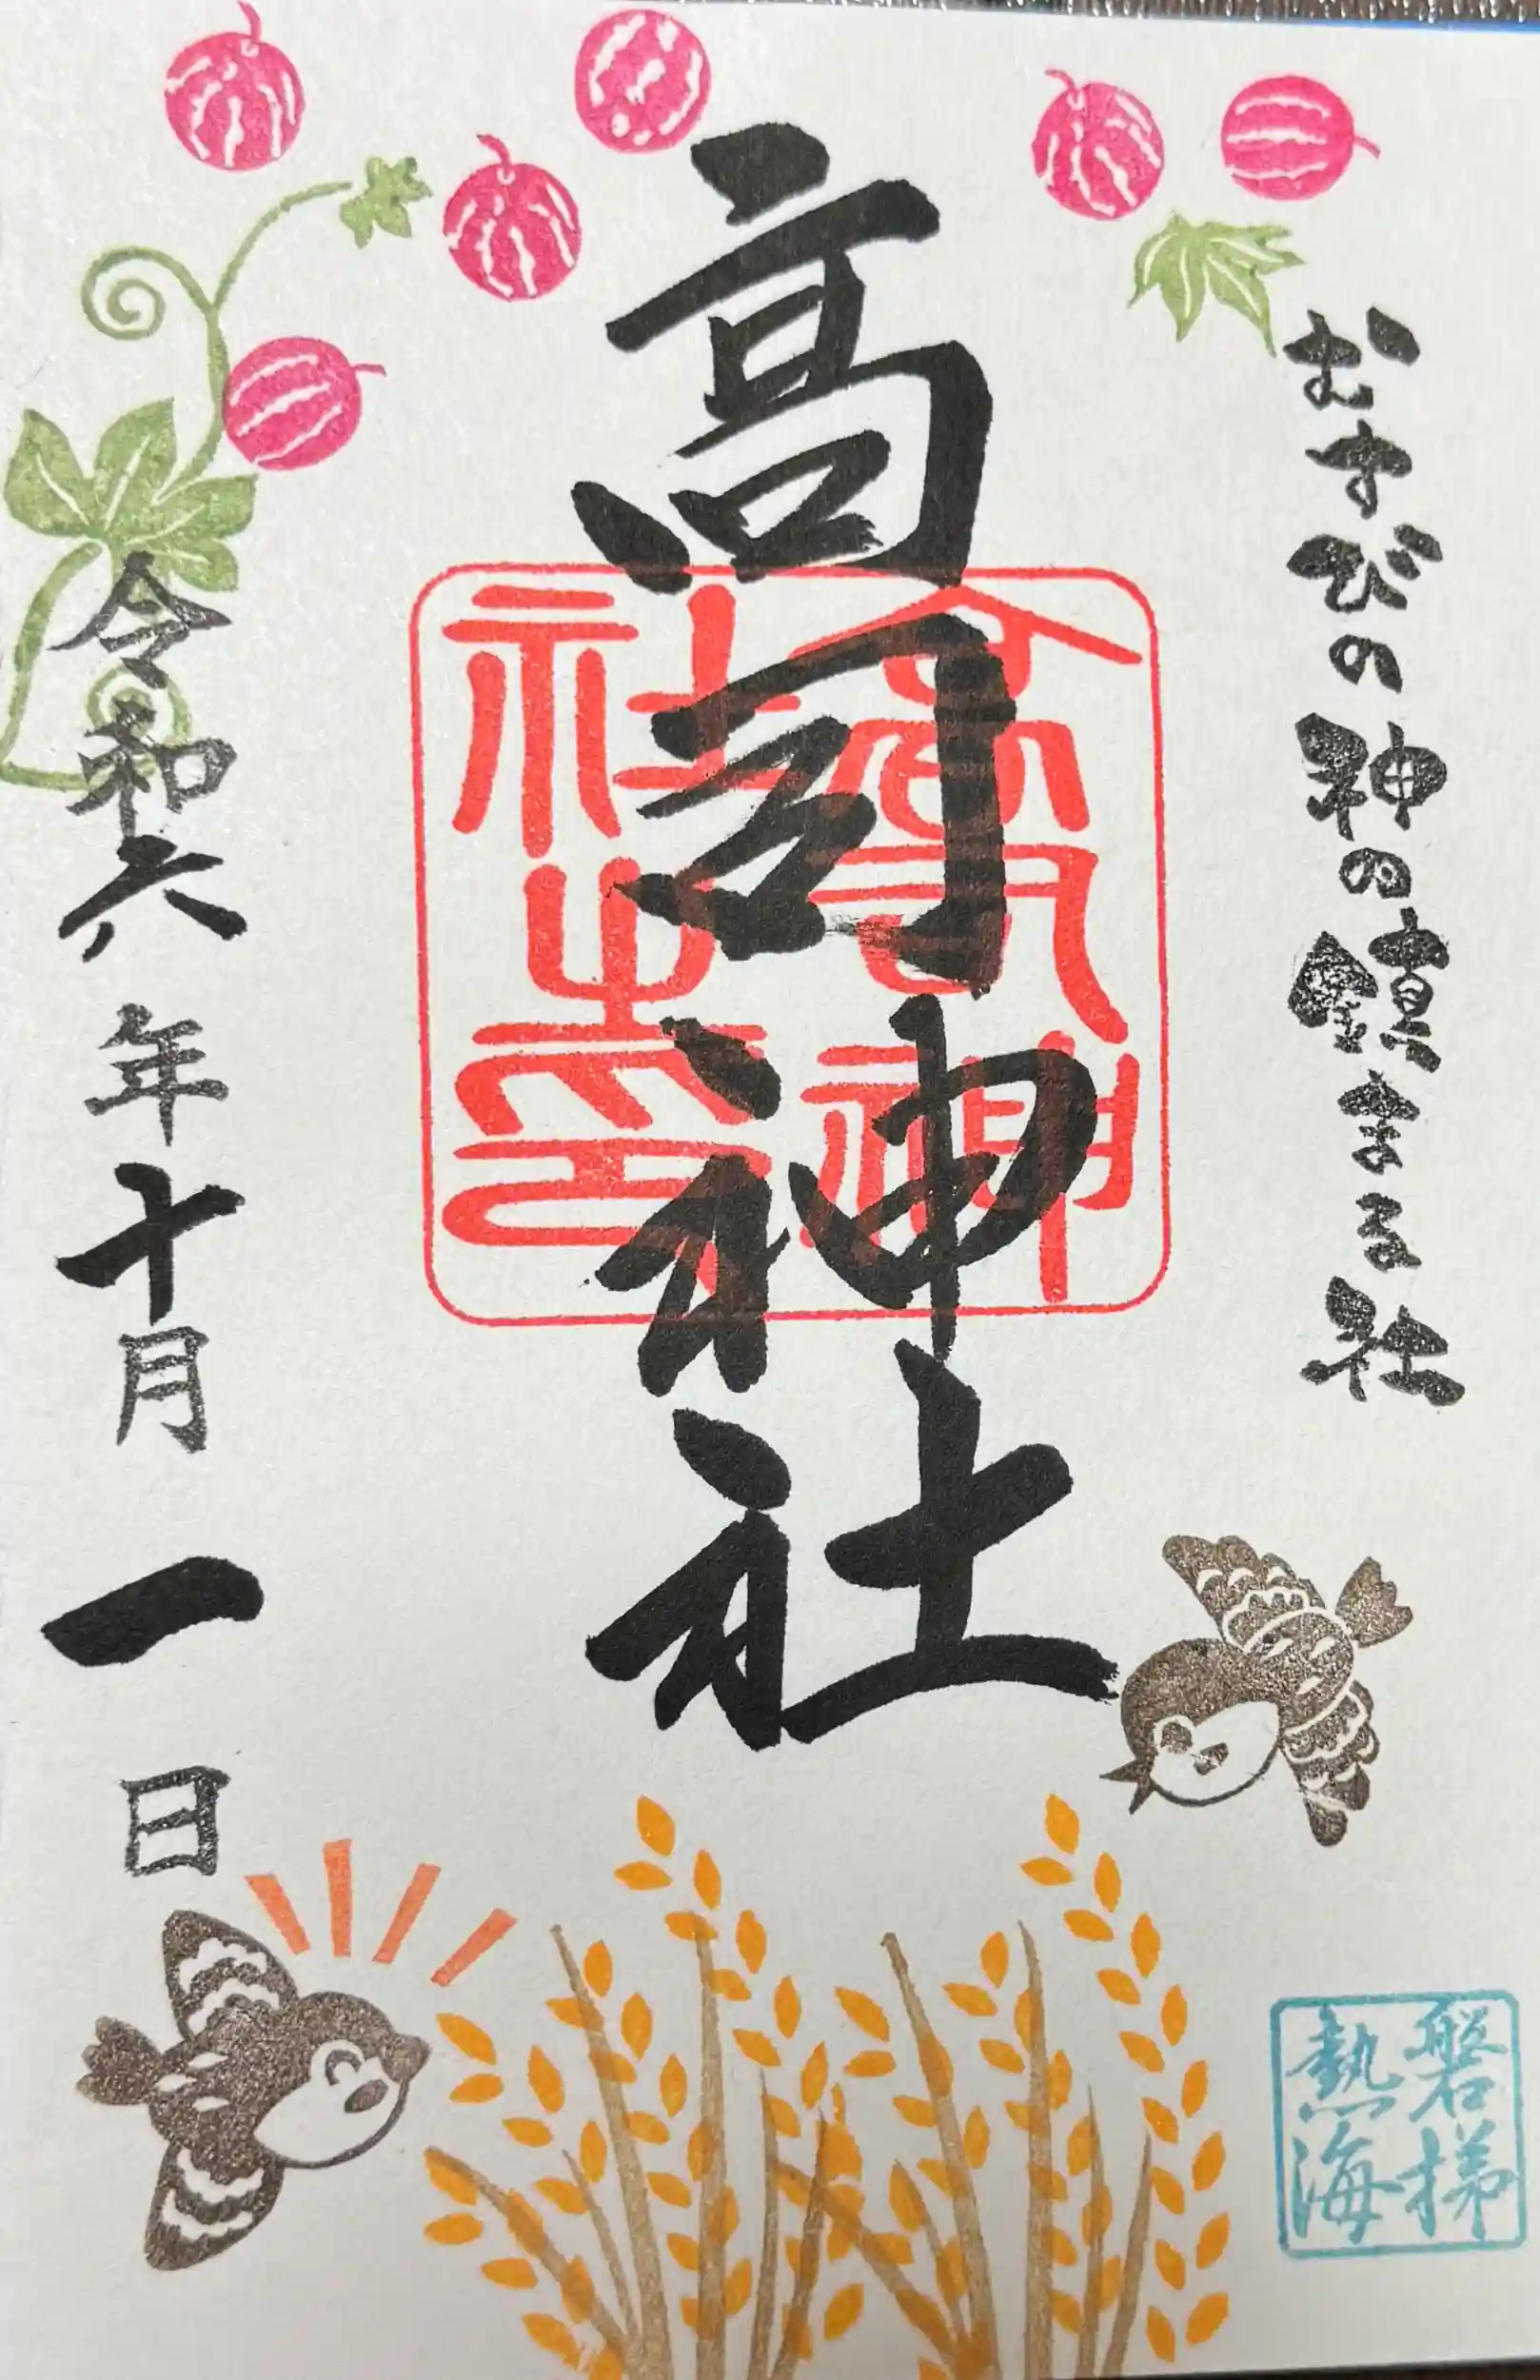 むすびの神の鎮まる社
高司神社
高司神
社之印
令和六年十月一日
磐梯
熱海